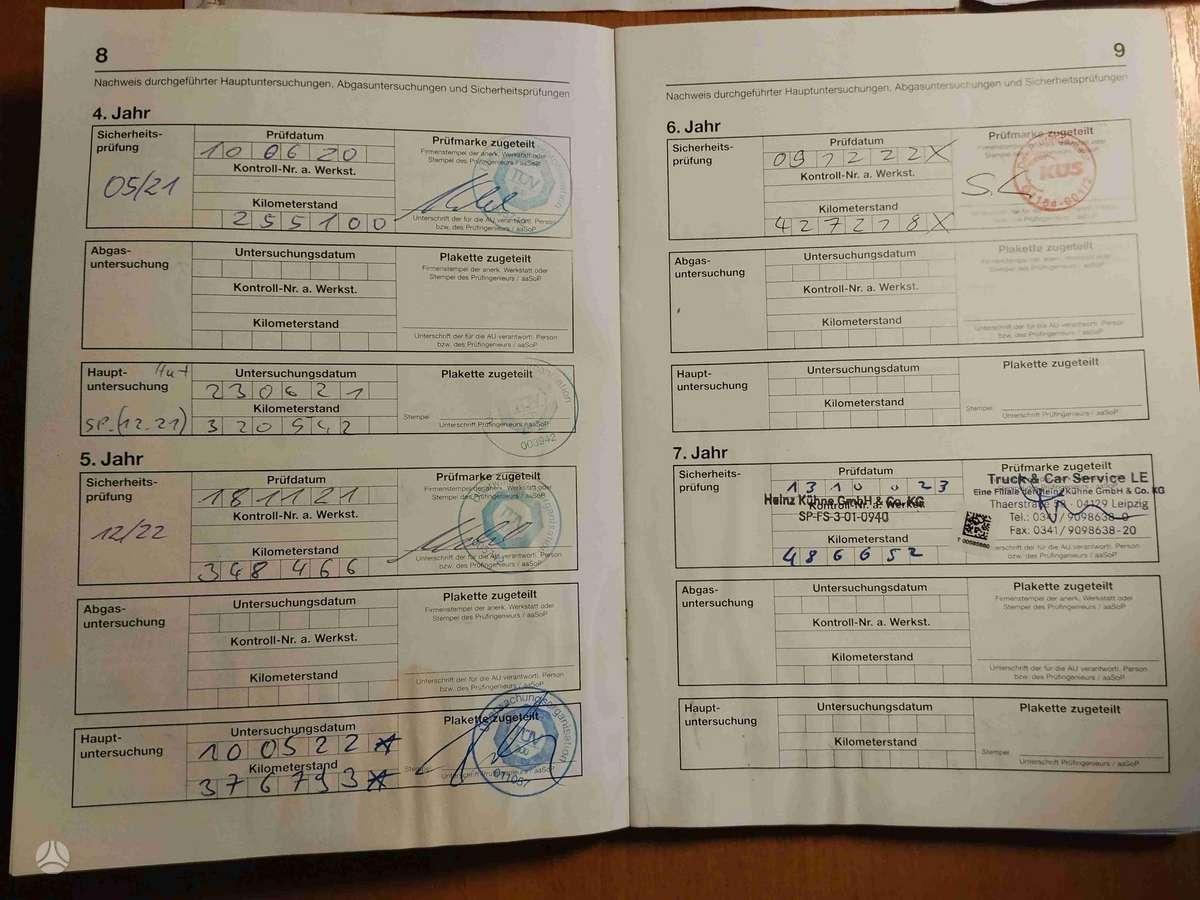 8
Nachweis durchgeführter Hauptuntersuchungen, Abgasuntersuchungen und Sicherheitsprüfungen
4. Jahr
Sicherheits-
prüfung
05/21
Prüfdatum
100620
Kontroll-Nr. a. Werkst.
Kilometerstand
255100
Prüfmarke zugeteilt
Firmenstempel der anerk. Werkstatt oder
Stempel des Prüfingenieurs / aaSoP
TÜV
Unterschrift der für die AU verantwortl. Person
bzw. des Prüfingenieurs / aaSoP
Abgas-
untersuchung
Untersuchungsdatum
Kontroll-Nr. a. Werkst.
Kilometerstand
Plakette zugeteilt
Firmenstempel der anerk. Werkstatt oder
Stempel des Prüfingenieurs / aaSoP
Unterschrift der für die AU verantwortl. Person
bzw. des Prüfingenieurs / aaSoP
Haupt-
untersuchung
SP (12.21)
Untersuchungsdatum
230621
Kilometerstand
320542
Plakette zugeteilt
Stempel
Unterschrift Prüfingenieurs / aaSoP
TÜV
003942
5. Jahr
Sicherheits-
prüfung
12/22
Prüfdatum
181121
Kontroll-Nr. a. Werkst.
Kilometerstand
348466
Prüfmarke zugeteilt
Firmenstempel der anerk. Werkstatt oder
Stempel des Prüfingenieurs / aaSoP
TÜV
Unterschrift der für die AU verantwortl. Person
bzw. des Prüfingenieurs / aaSoP
Abgas-
untersuchung
Untersuchungsdatum
Kontroll-Nr. a. Werkst.
Kilometerstand
Plakette zugeteilt
Firmenstempel der anerk. Werkstatt oder
Stempel des Prüfingenieurs / aaSoP
Unterschrift der für die AU verantwortl. Person
bzw. des Prüfingenieurs / aaSoP
Haupt-
untersuchung
Untersuchungsdatum
100522
Kilometerstand
376793
Plakette zugeteilt
Stempel
Unterschrift Prüfingenieurs / aaSoP
TÜV
9
Nachweis durchgeführter Hauptuntersuchungen, Abgasuntersuchungen und Sicherheitsprüfungen
6. Jahr
Sicherheits-
prüfung
Prüfdatum
091222X
Kontroll-Nr. a. Werkst.
Kilometerstand
427278X
Prüfmarke zugeteilt
KÜS
Abgas-
untersuchung
Untersuchungsdatum
Kontroll-Nr. a. Werkst.
Kilometerstand
Plakette zugeteilt
Firmenstempel der anerk. Werkstatt oder
Stempel des Prüfingenieurs / aaSoP
Unterschrift der für die AU verantwortl. Person
bzw. des Prüfingenieurs / aaSoP
Haupt-
untersuchung
Untersuchungsdatum
Kilometerstand
Plakette zugeteilt
Stempel
Unterschrift Prüfingenieurs / aaSoP
7. Jahr
Sicherheits-
prüfung
Prüfdatum
131023
Heinz Kühne GmbH & Co. KG
Kontroll-Nr. a. Werkst.
SP-FS-3-01-0940
Kilometerstand
486652
Prüfmarke zugeteilt
Truck & Car Service LE
Eine Filiale der Heinz Kühne GmbH & Co. KG
Thaerstraße 38 - 04129 Leipzig
Tel.: 0341/9098638-0
Fax: 0341/9098638-20
Unterschrift der für die AU verantwortl. Person
bzw. des Prüfingenieurs / aaSoP
Abgas-
untersuchung
Untersuchungsdatum
Kontroll-Nr. a. Werkst.
Kilometerstand
Plakette zugeteilt
Firmenstempel der anerk. Werkstatt oder
Stempel des Prüfingenieurs / aaSoP
Unterschrift der für die AU verantwortl. Person
bzw. des Prüfingenieurs / aaSoP
Haupt-
untersuchung
Untersuchungsdatum
Kilometerstand
Plakette zugeteilt
Stempel
Unterschrift Prüfingenieurs / aaSoP